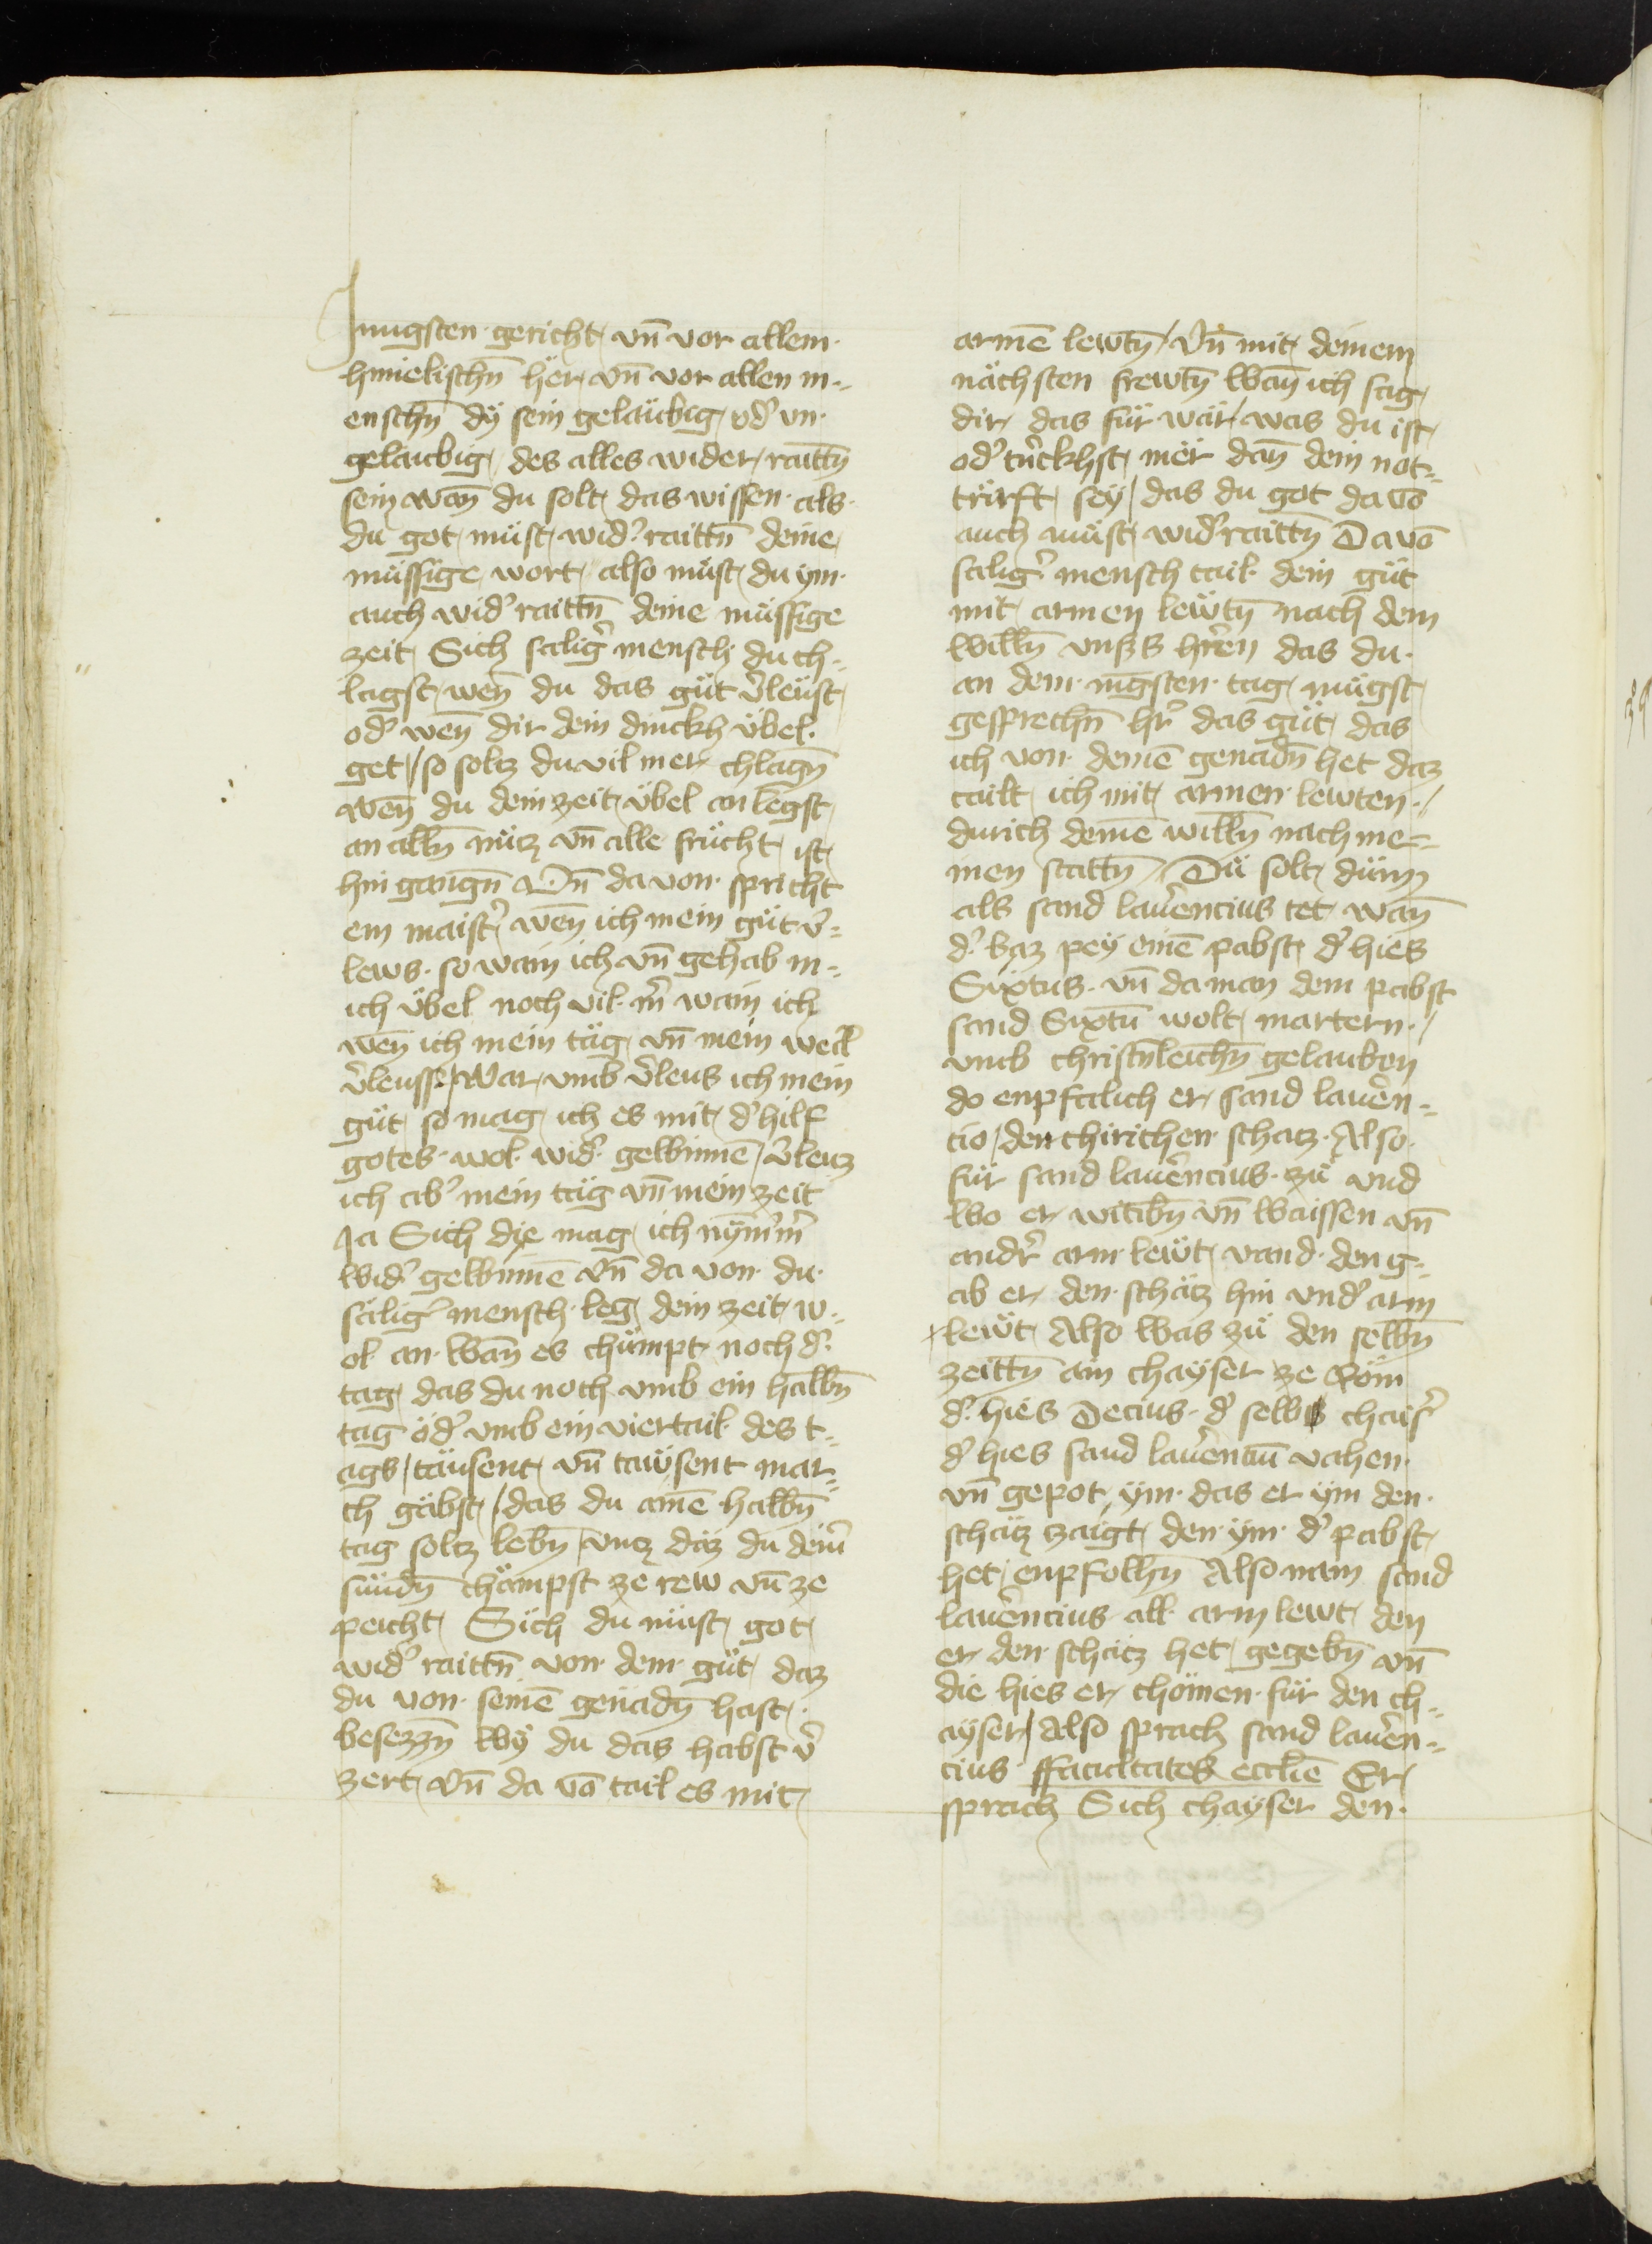 Jnngsten gericht vn̄ vor allem
himelischn̄ her vn̄ vor allen m¬
enschn̄ dÿ sein gelaübig od͛ vn
gelaubig des alles wider raittn̄
sein wan̄ du solt das wissen als
du got müst wid͛ raittn̄ deine
müssige wort also müst du ÿm
auch wid͛ raittn̄ deine müssige
zeit Sich salig͛ mensch du ch¬
lagst wen̄ du das güt v͛leüst
od͛ wen̄ dir dein dinckh übel
get / so soltz du vil mer chlagn̄
wen̄ du dein zeit übel an legst
an alln̄ nütz vn̄ alle frücht ist
hin gangn̄ Vn̄ da von spricht
ein maist͛ wen̄ ich mein güt v͛¬
lews so wain ich vn̄ gehab m¬
ich übel noch vil m͛ wain ich
wen̄ ich mein täg vn̄ mein weil
v͛leusse / War vmb v͛leus ich mein
güt so mag ich es mit d͛ hilf
gotes wol wid͛ gewinnē / v͛leuz
ich ab͛ mein täg vn̄ mein zeit
Ja Sich die mag ich nÿm͛m͛
wid͛ gewinnē Vn̄ da von du
sälig͛ mensch leg dein zeit w¬
ol an wan̄ es chümpt noch d͛
tag das du noch vmb ein halbn̄
tag öd͛ vmb ein viertail des t¬
ags / täusent vn̄ taüsent mar¬
ch gäbst / das du ainē halbn̄
tag soltz lebn̄ / vncz daz du dein͛
sündn̄ chämpst ze rew vn̄ ze
peicht Sich du müst got
wid͛ raittn̄ von dem güt daz
du von seinē genadn̄ hast
besezzn̄ wÿ du das habst v͛
zert Vn̄ da vō tail es mit
armē lewtn̄ / Vn̄ mit deinem
nächsten frewtn̄ wan̄ ich sag
dir das für wär / was du ist
od͛ trīckhst mër dan̄ dein not¬
türft seÿ / das du got da vō
auch müst wid͛raittn̄ Da vō
salig͛ mensch tail dein güt
mit armen lewtn̄ nach dem
willn̄ vnſ͛s hr͛en das du
an dem nīgsten tag mügst
gesprechn̄ hr͛ das güt das
ich von deinē genadn̄ het daz
tailt ich mit armen lewten /
durich deinē willn̄ nach mei¬
nen stattn̄ / Dü solt düm
als sand laur͛encius tet wan̄
d͛ baz peÿ einē pabst d͛ hies
Sixtus vn̄ da man dem pabst
sand Sixtū wolt martern /
vmb christn̄leichn̄ gelauben
do enpfalich er sand laur͛en¬
cio / den chirichen schatz Also
für sand laur͛encius zü vnd
wo er witibn̄ vn̄ waissen vn̄
andr͛ arm lewt vand den g¬
ab er den schätz hin vnd͛ arm
lewt Also was zü den selbn̄
zeittn̄ ain chaÿser ze Röm
d͛ hies Decius d͛ selb chais͛
d͛ hies sand laur͛enciū vahen
vn̄ gepot ÿm das er ÿm den
schätz zaigt den ÿm d͛ pabst
het enpfolhn̄ Also nam sand
laur͛encius all arm lewt den
er den schätz het gegebn̄ vn̄
die hies er chömen für den ch¬
aÿser / Also sprach sand laur͛en¬
cius ffacultates ecclīe Er
sprach Sich chaÿser den